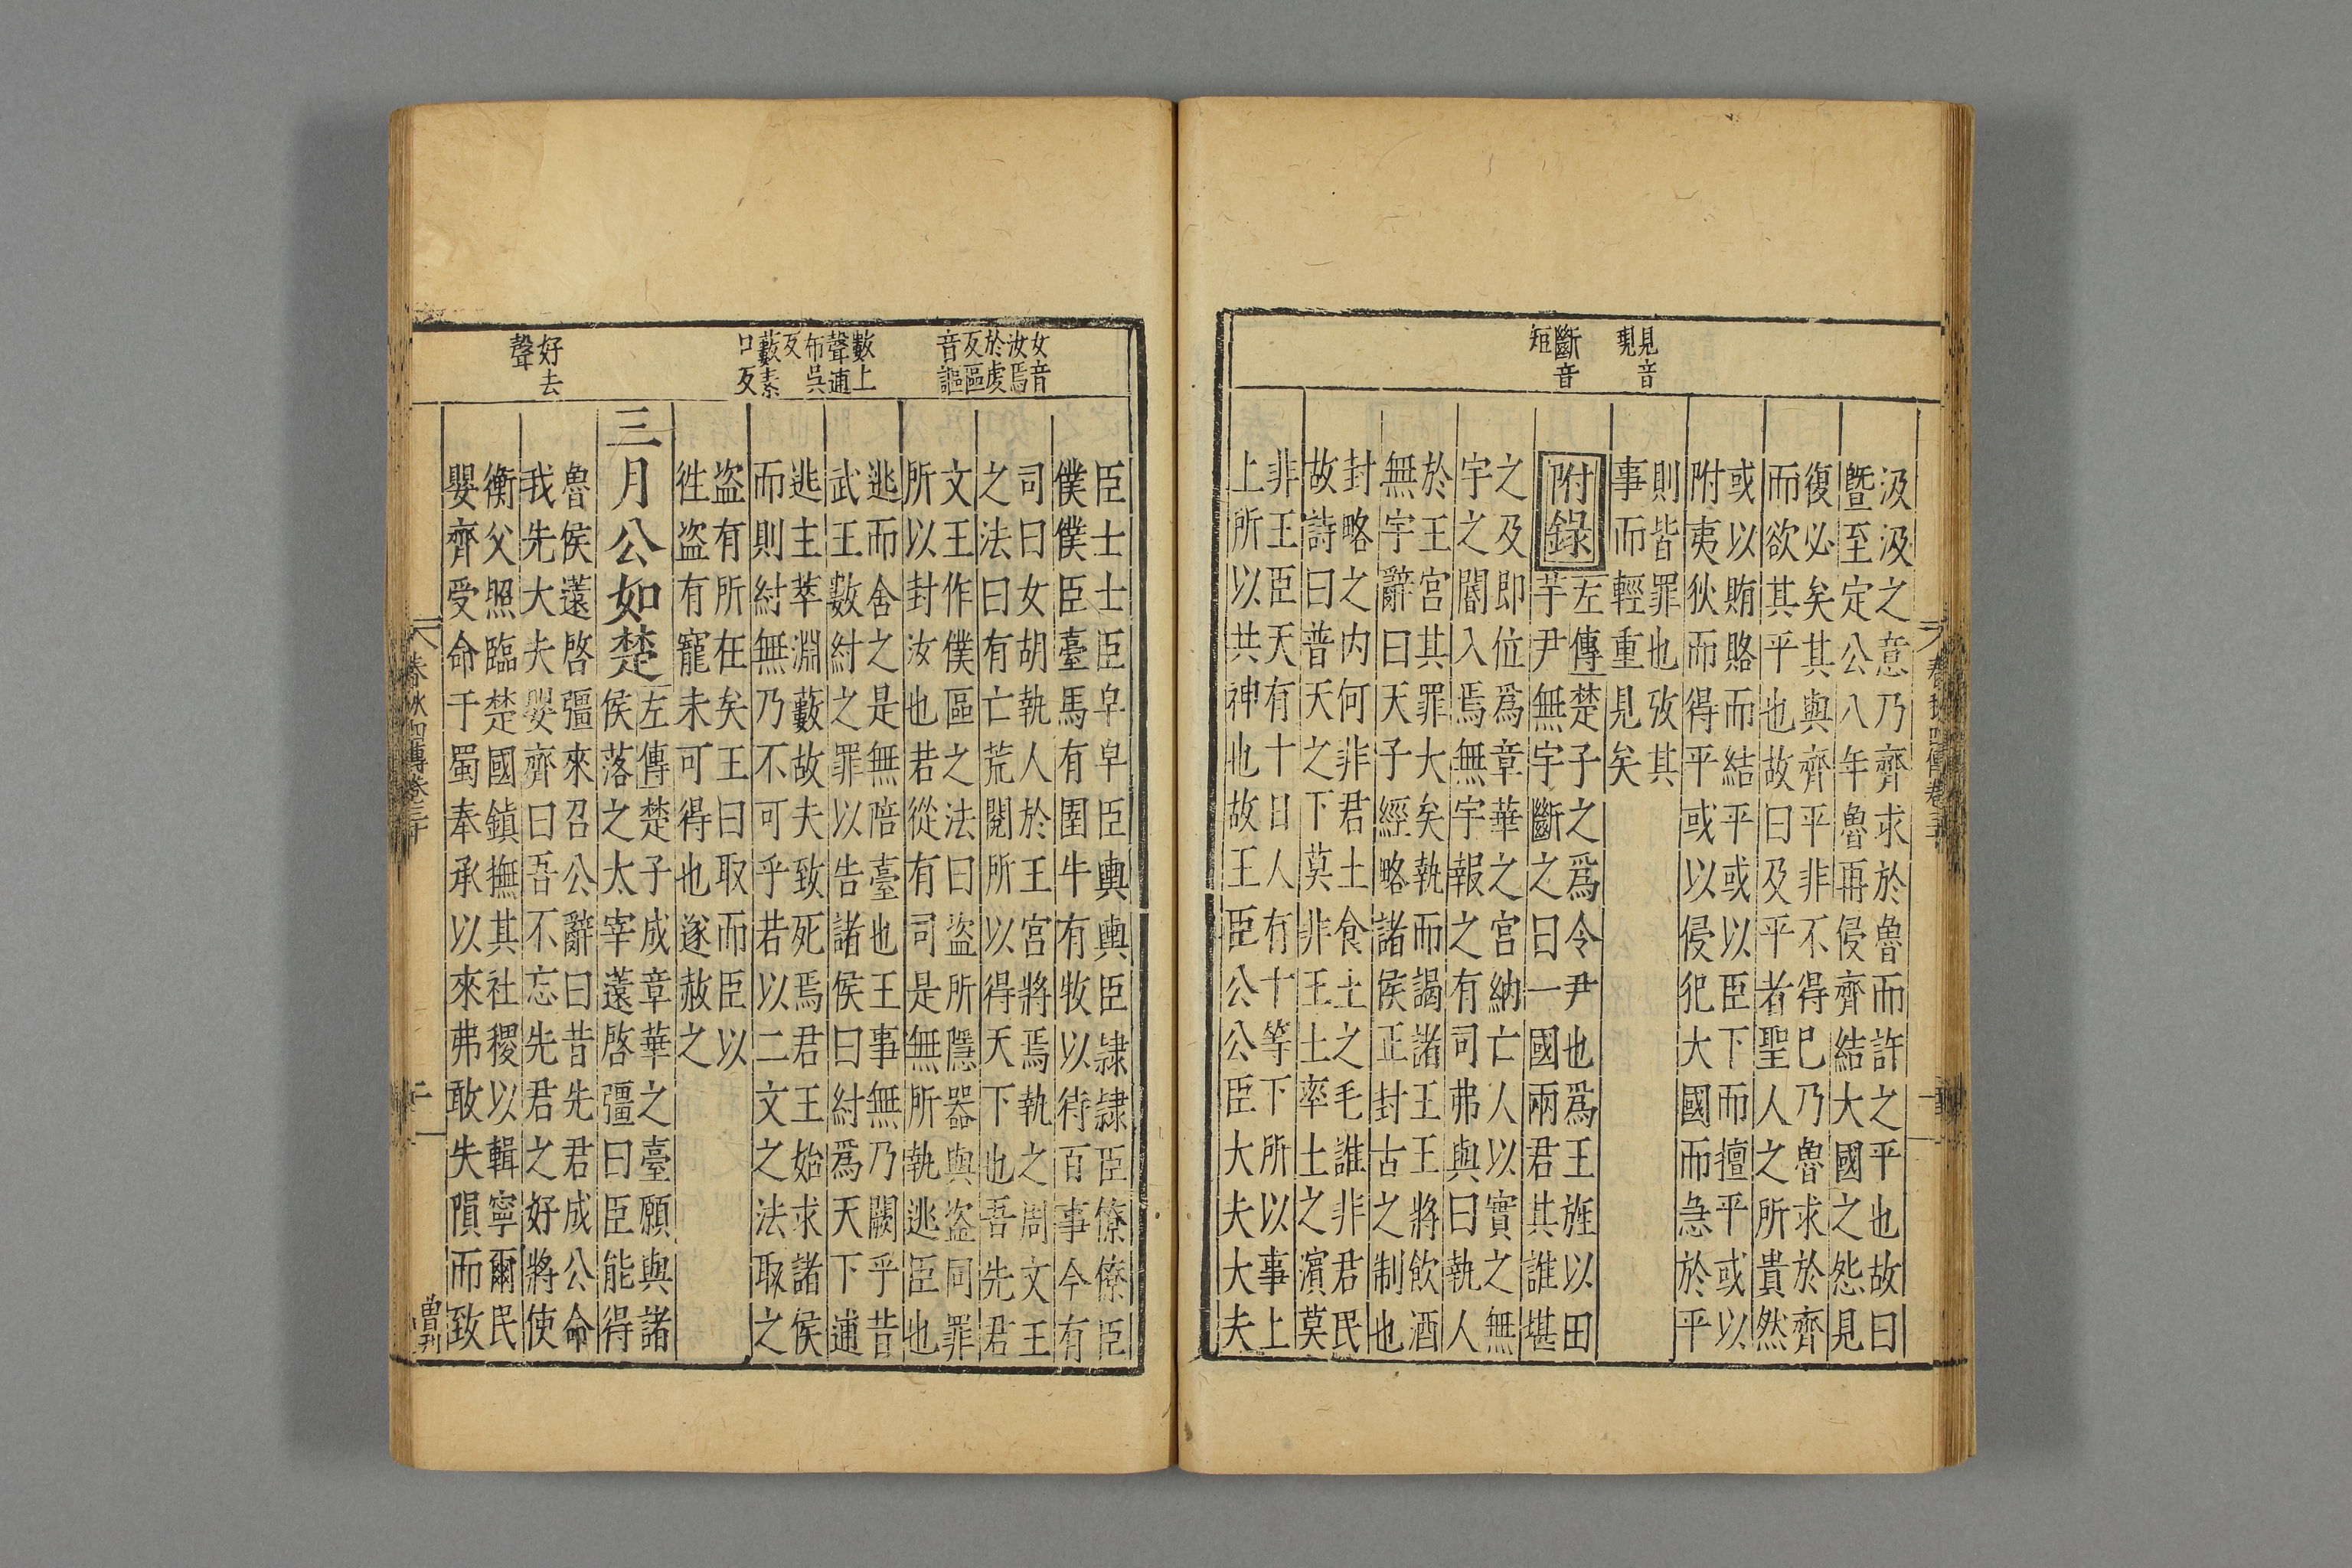 見音
現
斷音
短
汲汲之意乃齊求於魯而許之平也故曰
暨至定公八年魯再侵齊結大國之怨見
復必矣其與齊平非不得已乃魯求於齊
而欲其平也故曰及平者聖人之所貴然
或以賄賂而結平或以臣下而擅平或以
附夷狄而得平或以侵犯大國而急於平
則皆罪也攷其
事而輕重見矣
附錄
左傳楚子之爲令尹也爲王旌以田
芋尹無宇斷之曰一國兩君其誰堪
之及即位爲章華之宮納亡人以實之無
宇之閽入焉無宇報之有司弗與曰執人
於王宮其罪大矣執而謁諸王王將飲酒
無宇辭曰天子經略諸侯正封古之制也
封略之内何非君土食土之毛誰非君民
故詩曰普天之下莫非王土率土之濱莫
非王臣天有十日人有十等下所以事上
上所以共神也故王臣公公臣大夫大夫
女音
汝焉
於虔
反區
音謳
數上
聲逋
布吳
反
藪素
口反
好去
聲
臣士士臣皁皁臣輿輿臣隷隷臣僚僚臣
僕僕臣臺馬有圉牛有牧以待百事今有
司曰女胡執人於王宮將焉執之周文王
之法曰有亡荒閱所以得天下也吾先君
文王作僕區之法曰盜所隱器與盜同罪
所以封汝也若從有司是無所執逃臣也
逃而舍之是無陪臺也王事無乃闕乎昔
武王數紂之罪以告諸侯曰紂爲天下逋
逃主萃淵藪故夫致死焉君王始求諸侯
而則紂無乃不可乎若以二文之法取之
盜有所在矣王曰取而臣以
徃盜有寵未可得也遂赦之
三月公如楚
左傳楚子成章華之臺願與諸
侯落之太宰薳啓彊曰臣能得
魯侯薳啓彊來召公辭曰昔先君成公命
我先大夫嬰齊曰吾不忘先君之好將使
衡父照臨楚國鎮撫其社稷以輯寧爾民
嬰齊受命于蜀奉承以來弗敢失隕而致
春秋四傳卷三十